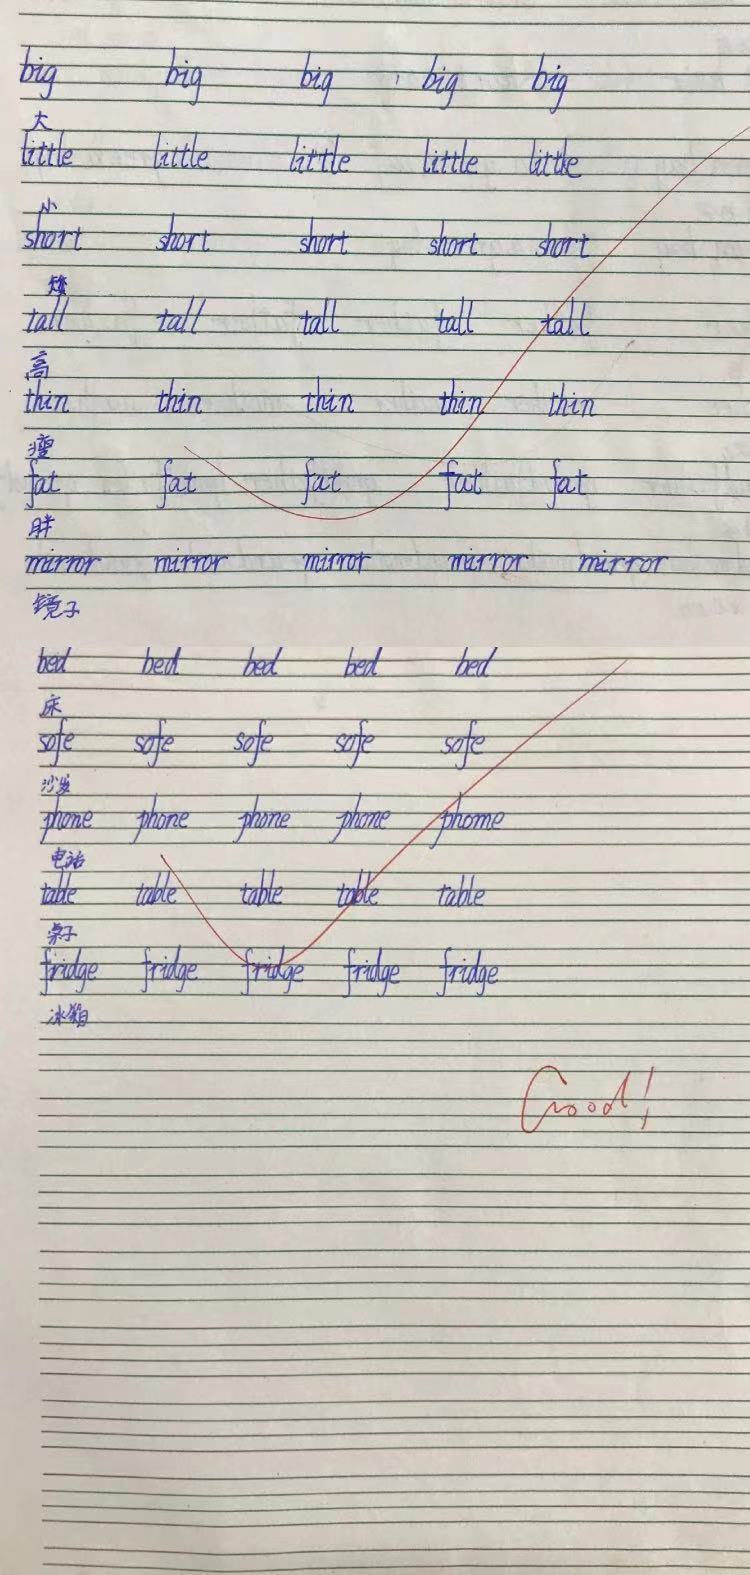 big big big big big
大
little little little little little
小
short short short short short
矮
tall tall tall tall tall
高
thin thin thin thin thin
瘦
fat fat fat fat fat
胖
mirror mirror mirror mirror mirror
镜子
bed bed bed bed bed
床
sofe sofe sofe sofe sofe
沙发
phone phone phone phone phome
电话
table table table table table
桌子
fridge fridge fridge fridge fridge
冰箱
Good!